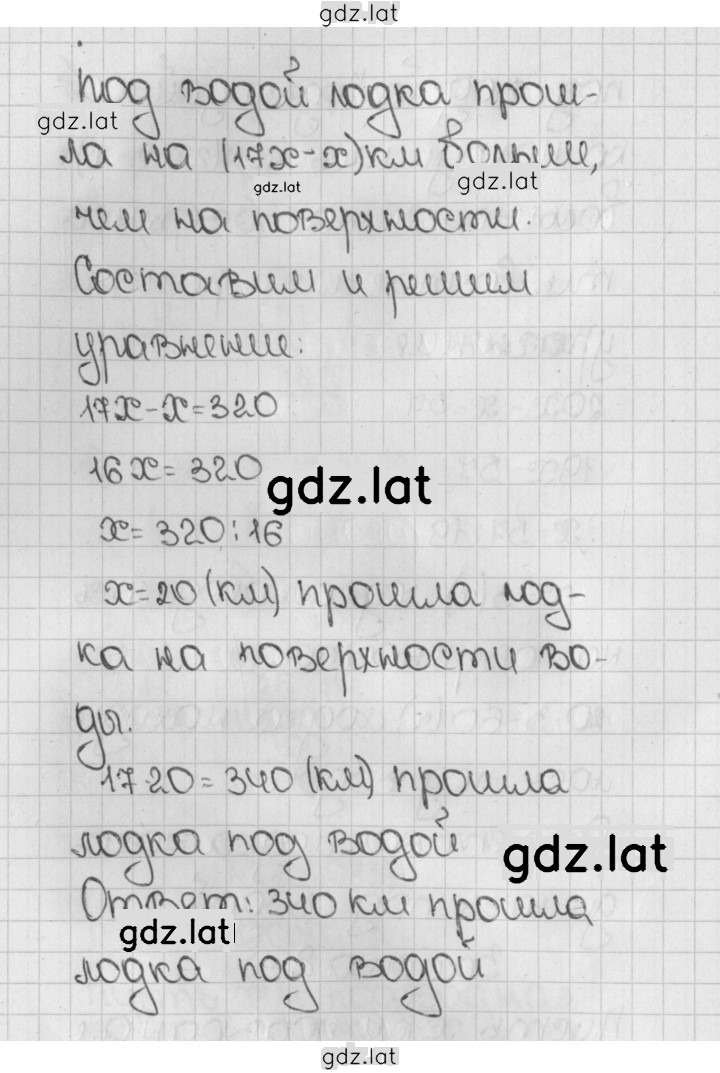 gdz.lat
под водой лодка прош-
gdz.lat
ла на (17х-х)км больше,
gdz.lat
gdz.lat
чем на поверхности.
Составим и решим
уравнение:
17х-х=320
16х=320
gdz.lat
х=320:16
х=20 (км) прошла лод-
ка на поверхности во-
ды.
17·20=340 (км) прошла
лодка под водой
gdz.lat
Ответ: 340 км прошла
gdz.lat
лодка под водой
gdz.lat